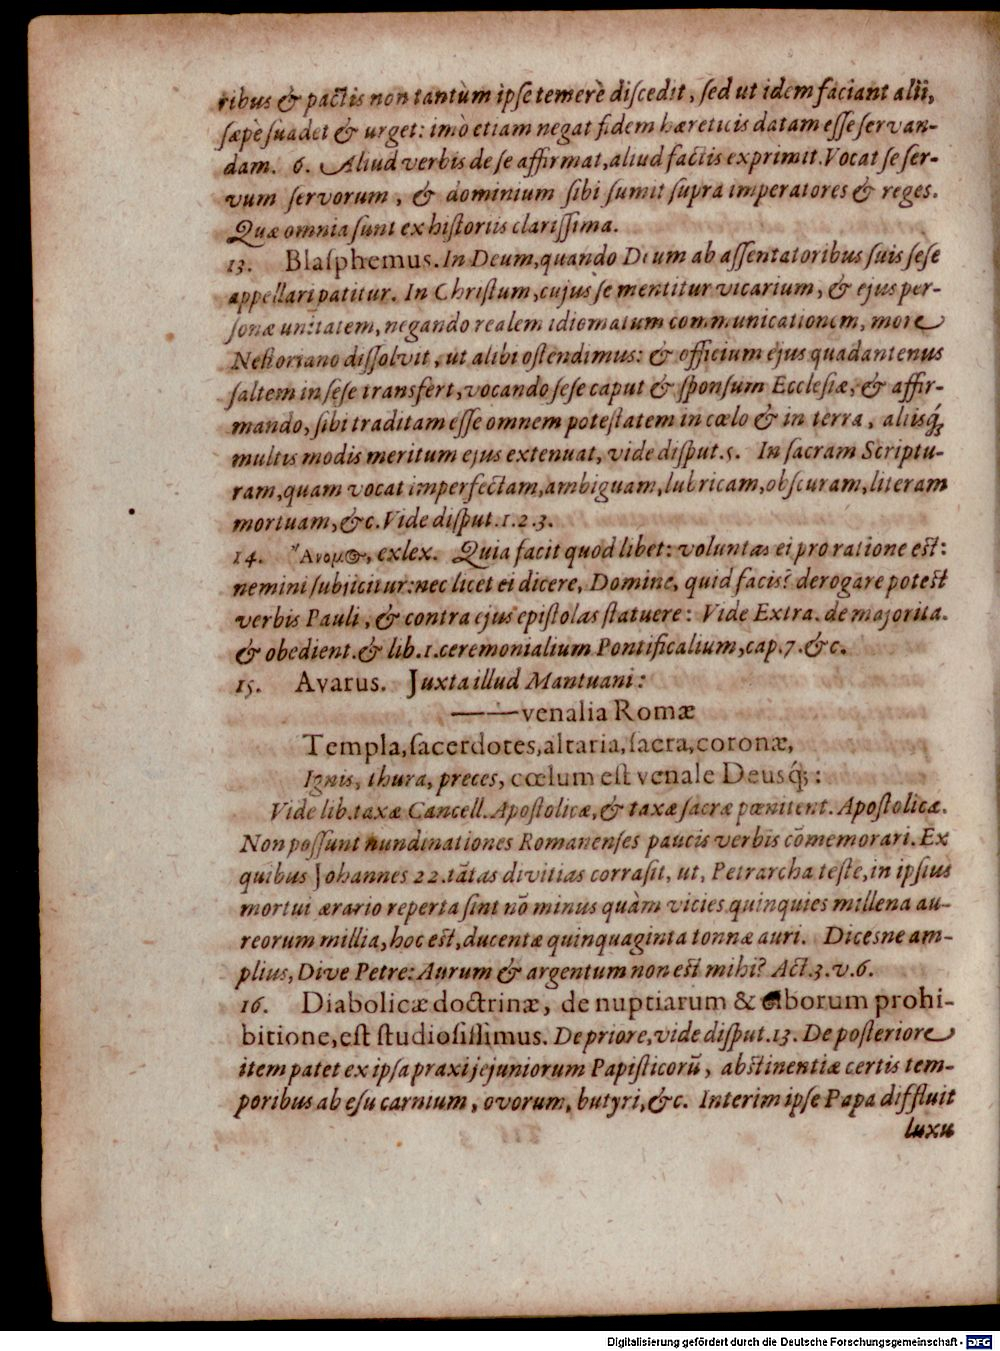 ribus & pactis non tantùm ipse temerè discedit, sed ut idem faciant alii,
sæpè suadet & urget: imò etiam negat fidem hæreticis datam esse servan-
dam. 6. Aliud verbis de se affirmat, aliud factis exprimit. Vocat se ser-
vum servorum, & dominium sibi sumit supra imperatores & reges.
Quæ omnia sunt ex historiis clarissima.
13. Blasphemus. In Deum, quando Deum ab assentatoribus suis sese
appellari patitur. In Christum, cujus se mentitur vicarium, & ejus per-
sonæ unitatem, negando realem idiomatum communicationem, more
Nestoriano dissolvit, ut alibi ostendimus: & officium ejus quadantenus
saltem in sese transfert, vocando sese caput & sponsum Ecclesiæ, & affir-
mando, sibi traditam esse omnem potestatem in cœlo & in terra, aliisq́;
multis modis meritum ejus extenuat, vide disput. 5. In sacram Scriptu-
ram, quam vocat imperfectam, ambiguam, lubricam, obscuram, literam
mortuam, &c. Vide disput. 1. 2. 3.
14. Ἄνομος, exlex. Quia facit quod libet: voluntas ei pro ratione est:
nemini subjicitur: nec licet ei dicere, Domine, quid facis? derogare potest
verbis Pauli, & contra ejus epistolas statuere: Vide Extra. de majorita.
& obedient. & lib. 1. ceremonialium Pontificalium, cap. 7. &c.
15. Avarus. Juxta illud Mantuani:
——venalia Romæ
Templa, sacerdotes, altaria, sacra, coronæ,
Ignis, thura, preces, cœlum est venale Deusq́;:
Vide lib. taxæ Cancell. Apostolicæ, & taxæ sacræ pœnitent. Apostolicæ.
Non possunt nundinationes Romanenses paucis verbis cõmemorari. Ex
quibus Johannes 22. tãtas divitias corrasit, ut, Petrarcha teste, in ipsius
mortui ærario reperta sint nõ minus quàm vicies quinquies millena au-
reorum millia, hoc est, ducentæ quinquaginta tonnæ auri. Dicesne am-
plius, Dive Petre: Aurum & argentum non est mihi? Act. 3. v. 6.
16. Diabolicæ doctrinæ, de nuptiarum & ciborum prohi-
bitione, est studiosissimus. De priore, vide disput. 13. De posteriore
item patet ex ipsa praxi jejuniorum Papisticorũ, abstinentiæ certis tem-
poribus ab esu carnium, ovorum, butyri, &c. Interim ipse Papa diffluit
luxu
Digitalisierung gefördert durch die Deutsche Forschungsgemeinschaft - DFG